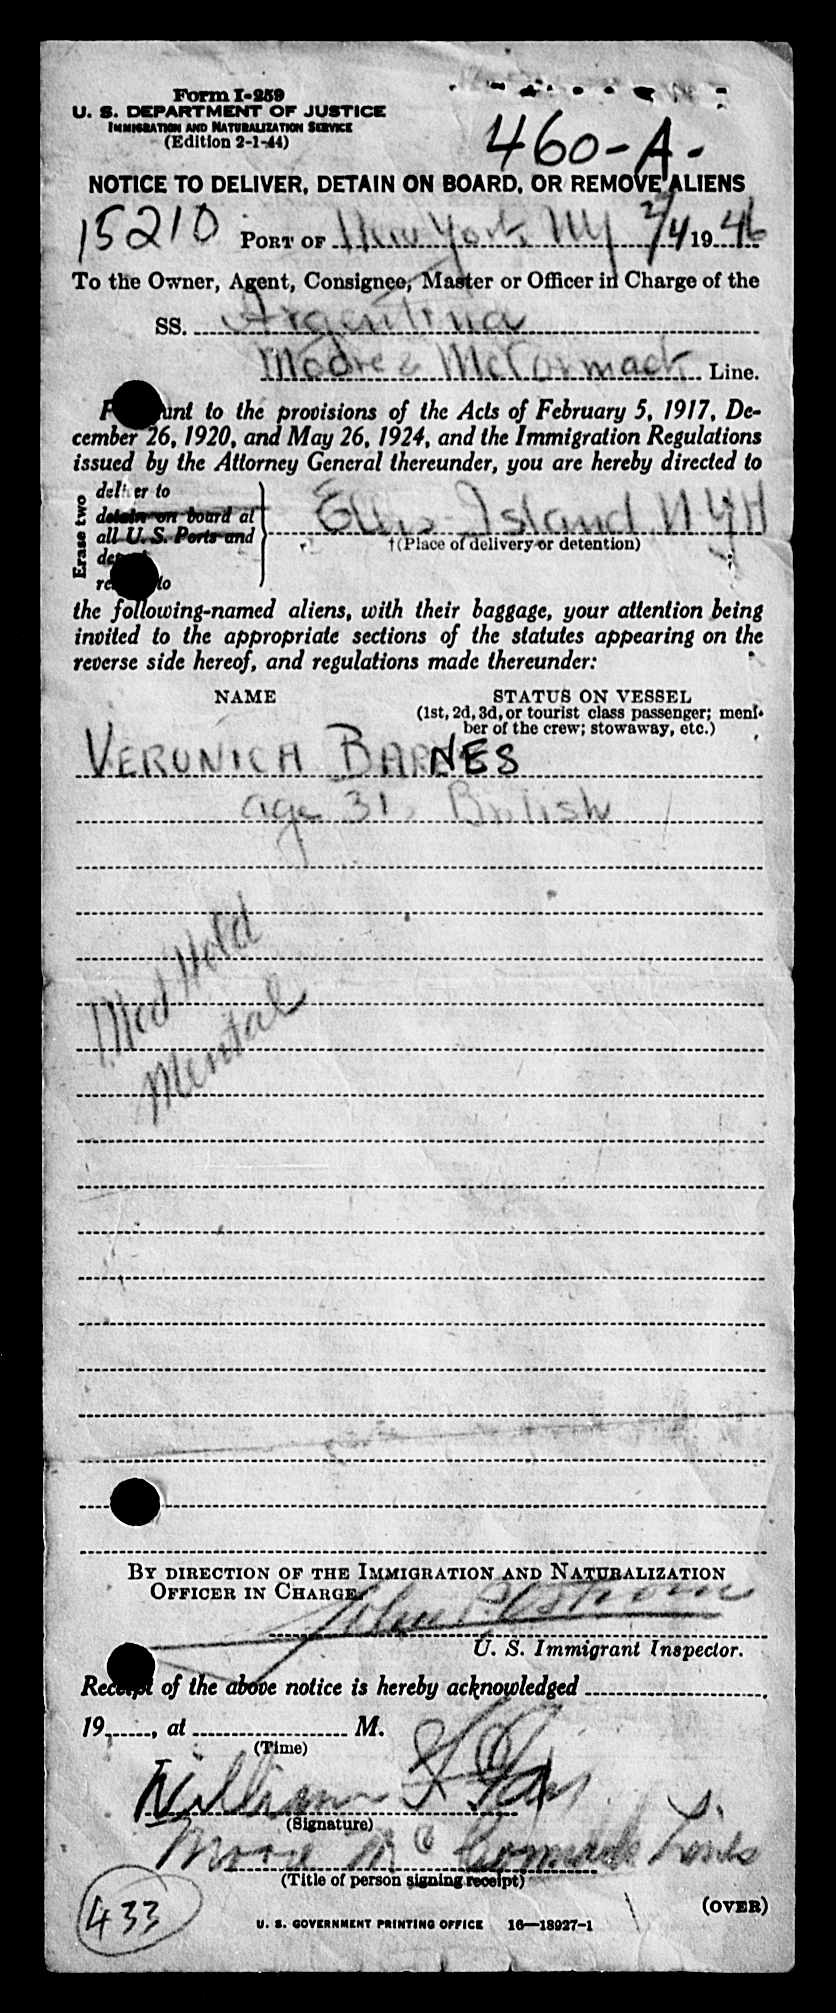 Form I-259
U. S. DEPARTMENT OF JUSTICE
IMMIGRATION AND NATURALIZATION SERVICE
(Edition 2-1-44)
460-A-
NOTICE TO DELIVER, DETAIN ON BOARD, OR REMOVE ALIENS
15210 PORT OF New York, NY 2/4 1946
To the Owner, Agent, Consignee, Master or Officer in Charge of the
SS. Argentina
Moore & McCormack Line.
unt to the provisions of the Acts of February 5, 1917, De-
cember 26, 1920, and May 26, 1924, and the Immigration Regulations
issued by the Attorney General thereunder, you are hereby directed to
Erase two
deliver to
detain on board at
all U. S. Ports and
to
Ellis Island NYH
†(Place of delivery or detention)
the following-named aliens, with their baggage, your attention being
invited to the appropriate sections of the statutes appearing on the
reverse side hereof, and regulations made thereunder:
NAME STATUS ON VESSEL
(1st, 2d, 3d, or tourist class passenger; mem-
ber of the crew; stowaway, etc.)
VERONICA BARNES
age 31, British
Med Hold
Mental
BY DIRECTION OF THE IMMIGRATION AND NATURALIZATION
OFFICER IN CHARGE,
U. S. Immigrant Inspector.
Receipt of the above notice is hereby acknowledged
19 , at M.
(Time)
William
(Signature)
Moore Mc Cormack Lines
(Title of person signing receipt)
433
(OVER)
U. S. GOVERNMENT PRINTING OFFICE 16—18927-1